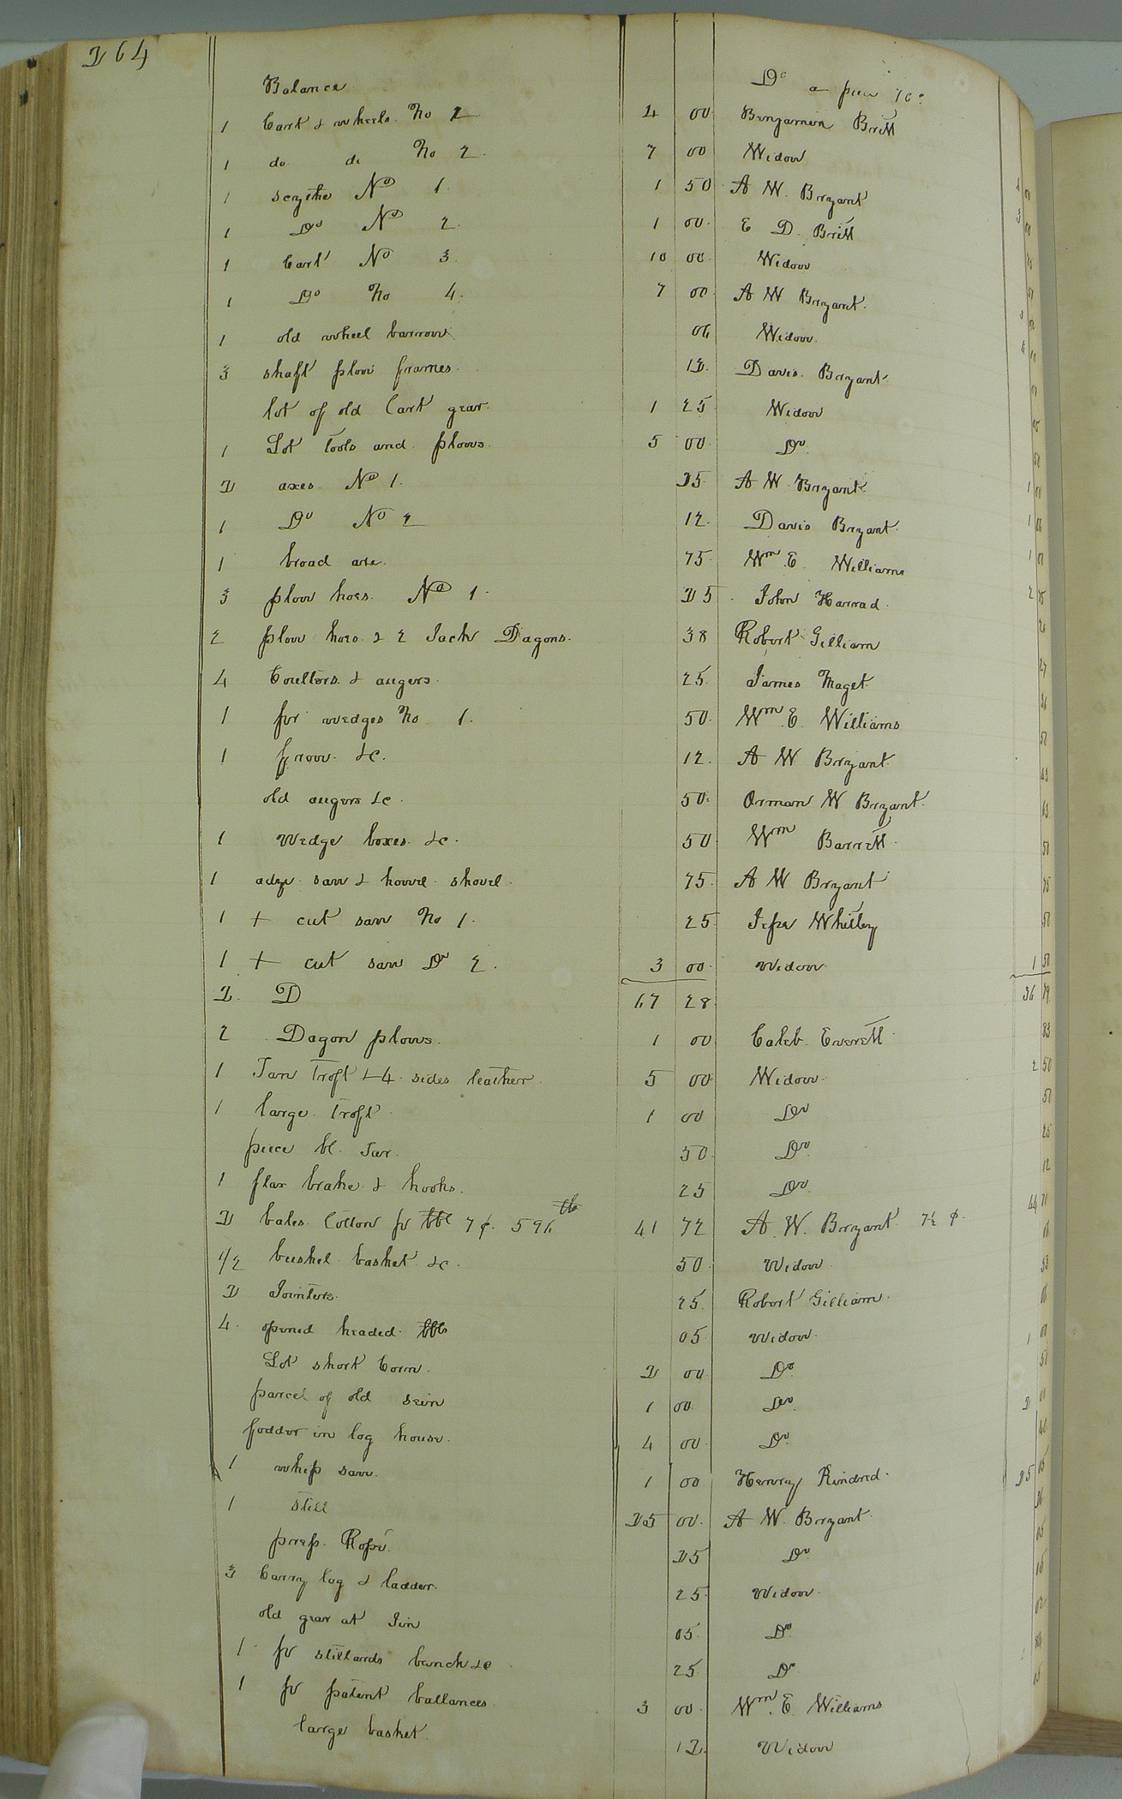 264
Balance Do a piece 10c
1 Cart & wheels No 2 4 00 Benjamin Britt
1 do do No 2 7 00 Widow
1 scythe No 1 1 50 A W. Bryant
1 Do No 2. 1 00 E D. Britt
1 Cart No 3 10 00 Widow
1 Do No 4. 7 00 A W Bryant.
1 old wheel barrow 06 Widow
3 shaft plow frames. 12 Davis Bryant
lot of old Cart gear 1 25 Widow
1 Lot tools and plows 5 00 Do
2 axes No 1. 25 A W. Bryant
1 Do No 2 12 Davis Bryant
1 broad axe. 75 Wm E. Williams
3 plow hoes. No 1. 25 John Harrad
2 plow hoes & 2 Jack Dagons. 38 Robert Gilliam
4 Coulters & augers. 25 James Maget
1 pr wedges No 1. 50 Wm E. Williams
1 frow &c. 12 A W Bryant
old augers &c. 50 Orman W Bryant
1 Wedge boxes &c. 50 Wm Barrett
1 adze saw & shovel 75 A W Bryant
1 + cut saw No 1. 25 Whitley
1 + cut saw Do 2. 3 00 Widow
2. D 67 28
2 Dagon plows. 1 00 Caleb Everett
1 Tan Troft & 4 sides leather 5 00 Widow
1 large Troft 1 00 Do
piece bl. Tar. 50 Do
1 flax brake & hooks. 25 Do
2 bales Cotton pr 7¢. 596 lb 41 72 A. W. Bryant 7½ ¢.
1/2 bushel basket &c. 50 Widow
2 Jointers. 25. Robert Gilliam.
4. opened headed bbls 05 Widow
Lot short Corn. 2 00 Do
parcel of old 1 00 Do
fodder in log house. 4 00 Do
1 whip saw. 1 00 Henry Kindred.
1 still 25 00 A W. Bryant
press Rope. 25 Do
3 Carry log & ladder. 25 Widow
old gear at Gin 05 Do
1 pr stillards bench &c 25 Do
1 pr patent ballances 3 00 Wm. E Williams
large basket 12 Widow